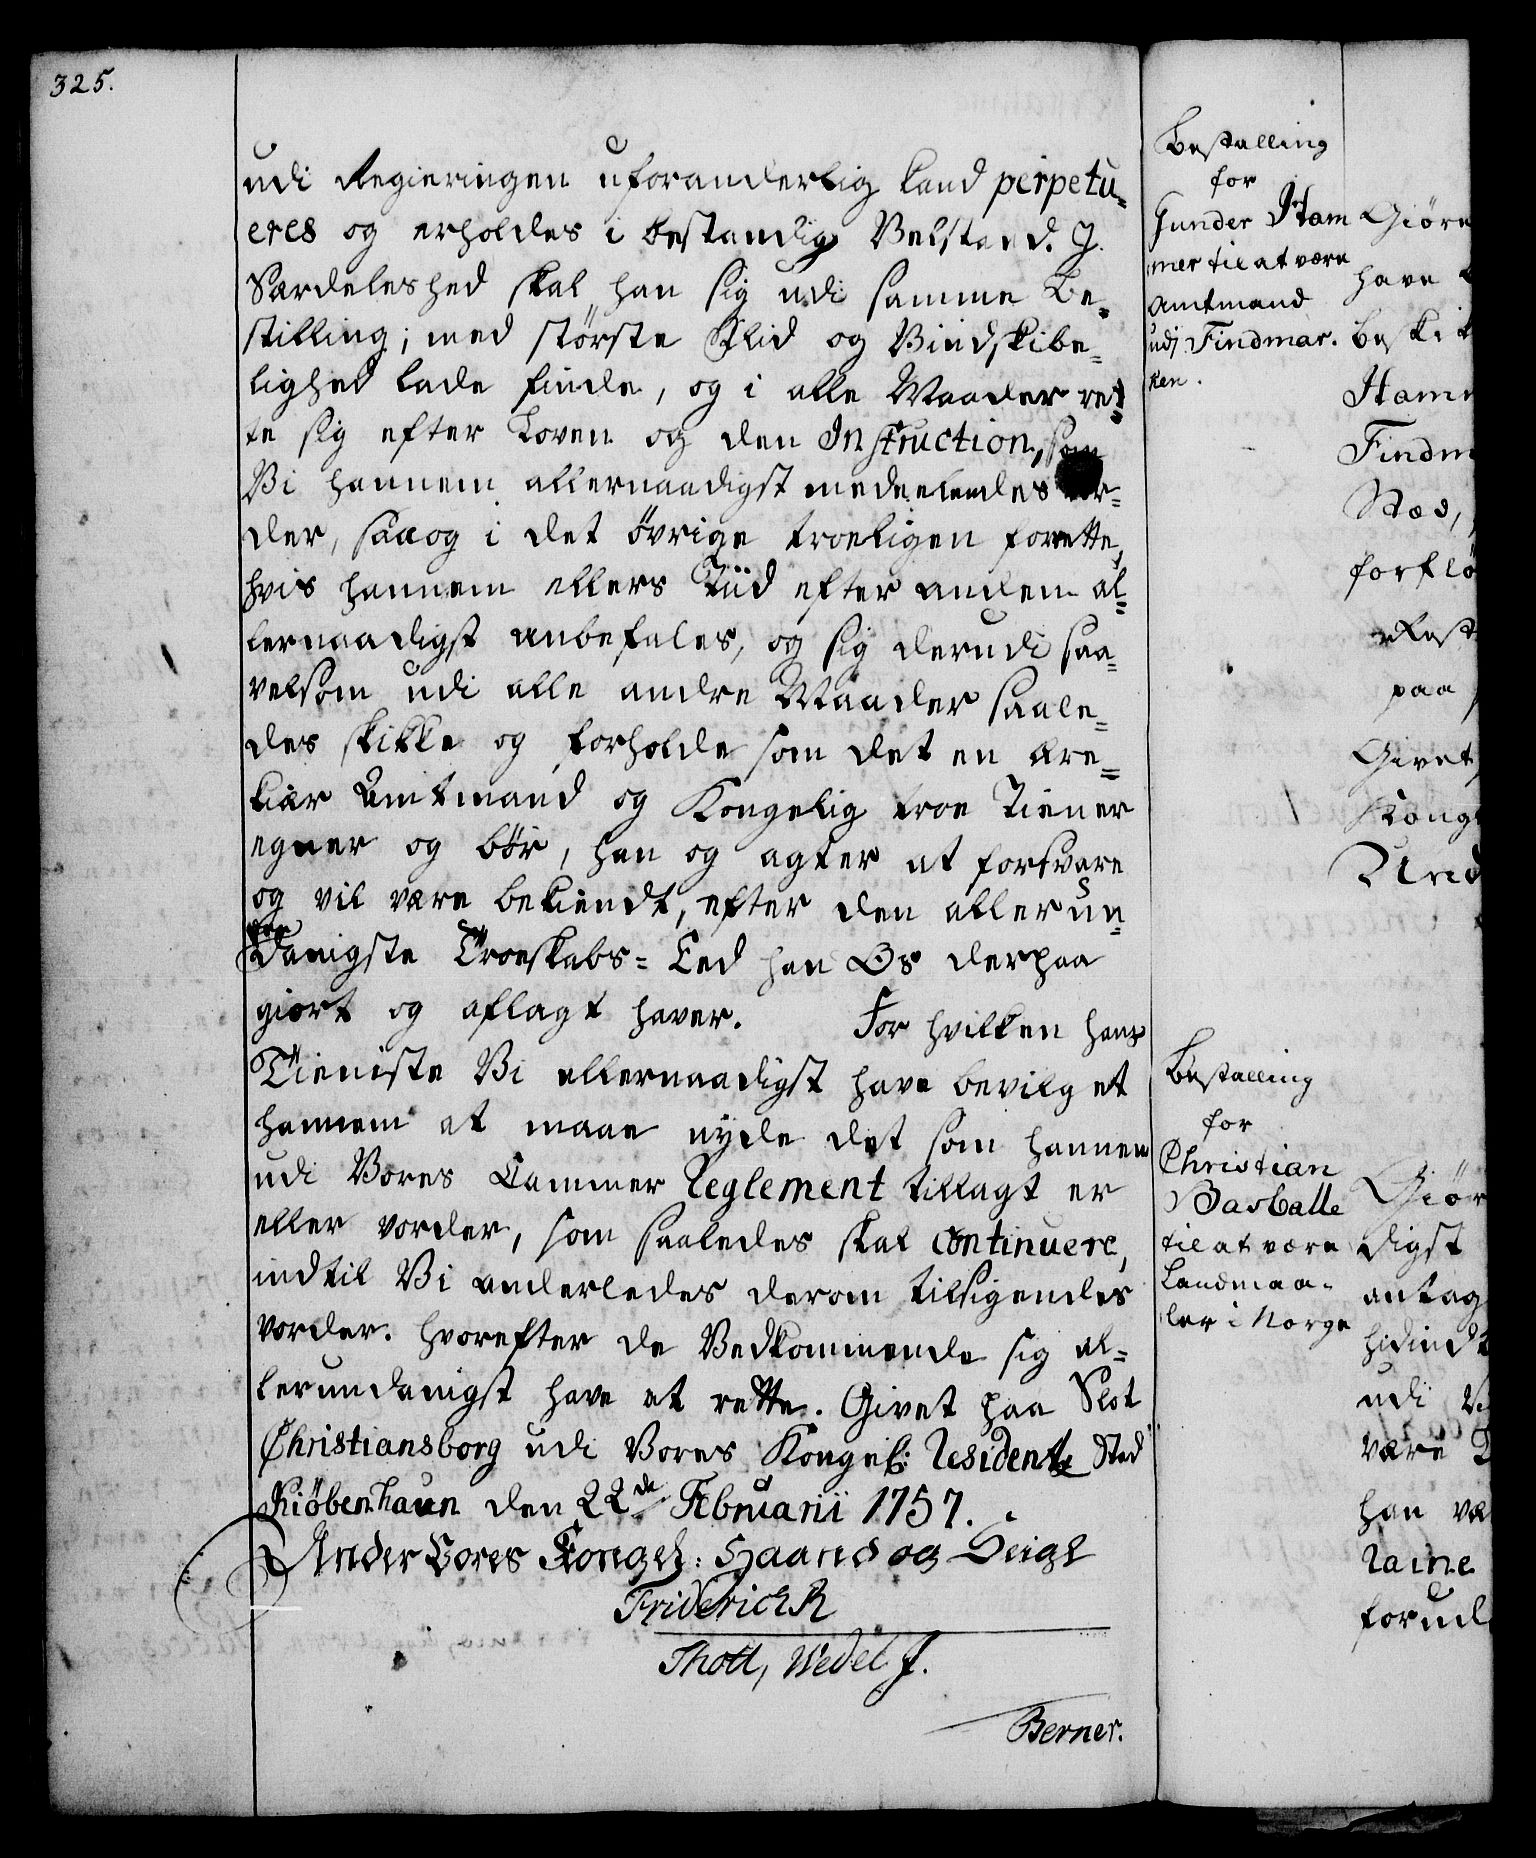 325.
udi Regieringen uforanderlig kand perpetu=
eres og erholdes i bestandig Velstand. J.
Særdeleshed skal han sig udi samme Be=
stilling; med störste Flid og Vindskibe=
lighed lade finde, og i alle Maader ret=
te sig efter Loven og den Instruction, som
Vi hannem allernaadigst meddeelendes vor=
der, saa og i det övrige troeligen forrette,
hvis hannem ellers Tiid efter anden al=
lernaadigst anbefales, og sig derudi saa=
velsom udi alle andre Maader saale=
des skikke og forholde som det en ære=
kiær Amtmand og Kongelig troe Tiener
egner og bör, han og agter at forsvare
og vil være bekiendt, efter den allerun=
danigste Troeskabs= Eed han Os derpaa
giort og aflagt haver. For hvilken hans
Tieniste Vi allernaadigst have bevilget
hannem at maae nyde det som hannem
udi Vores Cammer Reglement tillagt er
eller vorder, som saaledes skal continuere,
indtil Vi anderledes derom tilsigendes
vorder. hvorefter de Vedkommende sig al=
lerundanigst have at rette. Givet paa Slot
Christiansborg udi Vores Kongel: Residentz Stad
Kiöbenhaun den 22de Februarii 1757.
Under Vores Kongel: Haand og Seigl
Friderich R
Thott, Wedel J.
Berner.
Bestalling
for
Gunder Ham
mer til at være
Amtmand
udj Findmar.
ken.
Bestalling
for
Christian
Basballe
til at være
Landmaa=
ler i Norge
Giöre
have
beski
Ham
Findm
Stæd,
forflö
Rest
paa
Givet
Kong
Und
Giör
digst
antag
hidindt
udi V
være
han væ
raine
forud